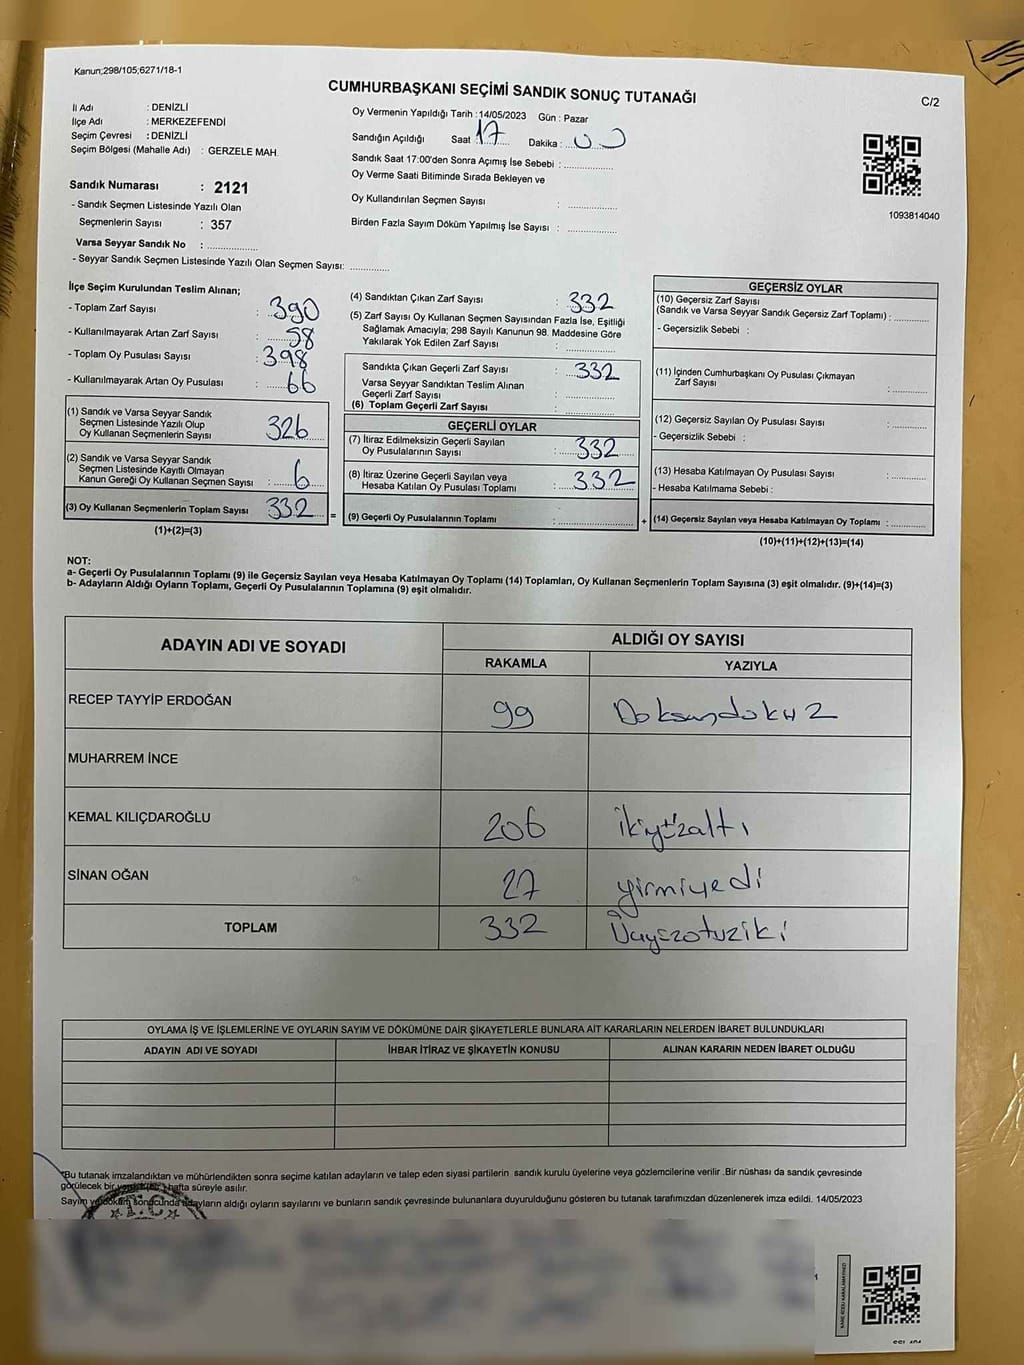 Kanun;298/105;6271/18-1
CUMHURBAŞKANI SEÇİMİ SANDIK SONUÇ TUTANAĞI
C/2
İl Adı : DENİZLİ
İlçe Adı : MERKEZEFENDİ
Seçim Çevresi : DENİZLİ
Seçim Bölgesi (Mahalle Adı) : GERZELE MAH.
Sandık Numarası : 2121
- Sandık Seçmen Listesinde Yazılı Olan
Seçmenlerin Sayısı : 357
Varsa Seyyar Sandık No : ..............
- Seyyar Sandık Seçmen Listesinde Yazılı Olan Seçmen Sayısı: ............
Oy Vermenin Yapıldığı Tarih : 14/05/2023 Gün : Pazar
Sandığın Açıldığı Saat : 17 Dakika : 00
Sandık Saat 17:00'den Sonra Açımış İse Sebebi : ..............
Oy Verme Saati Bitiminde Sırada Bekleyen ve
Oy Kullandırılan Seçmen Sayısı : ..............
Birden Fazla Sayım Döküm Yapılmış İse Sayısı : ..............
1093814040
İlçe Seçim Kurulundan Teslim Alınan;
- Toplam Zarf Sayısı : 390
- Kullanılmayarak Artan Zarf Sayısı : 58
- Toplam Oy Pusulası Sayısı : 398
- Kullanılmayarak Artan Oy Pusulası : 66
(1) Sandık ve Varsa Seyyar Sandık
Seçmen Listesinde Yazılı Olup
Oy Kullanan Seçmenlerin Sayısı 326
(2) Sandık ve Varsa Seyyar Sandık
Seçmen Listesinde Kayıtlı Olmayan
Kanun Gereği Oy Kullanan Seçmen Sayısı : 6
(3) Oy Kullanan Seçmenlerin Toplam Sayısı 332
(1)+(2)=(3)
=
(4) Sandıktan Çıkan Zarf Sayısı : 332
(5) Zarf Sayısı Oy Kullanan Seçmen Sayısından Fazla İse, Eşitliği
Sağlamak Amacıyla; 298 Sayılı Kanunun 98. Maddesine Göre
Yakılarak Yok Edilen Zarf Sayısı : ..............
Sandıkta Çıkan Geçerli Zarf Sayısı : 332
Varsa Seyyar Sandıktan Teslim Alınan
Geçerli Zarf Sayısı : ..............
(6) Toplam Geçerli Zarf Sayısı : ..............
GEÇERLİ OYLAR
(7) İtiraz Edilmeksizin Geçerli Sayılan
Oy Pusulalarının Sayısı : 332
(8) İtiraz Üzerine Geçerli Sayılan veya
Hesaba Katılan Oy Pusulası Toplamı : 332
(9) Geçerli Oy Pusulalarının Toplamı : ..............
+
GEÇERSİZ OYLAR
(10) Geçersiz Zarf Sayısı
(Sandık ve Varsa Seyyar Sandık Geçersiz Zarf Toplamı) : ............
- Geçersizlik Sebebi :
(11) İçinden Cumhurbaşkanı Oy Pusulası Çıkmayan
Zarf Sayısı : ............
(12) Geçersiz Sayılan Oy Pusulası Sayısı : ............
- Geçersizlik Sebebi :
(13) Hesaba Katılmayan Oy Pusulası Sayısı : ............
- Hesaba Katılmama Sebebi :
(14) Geçersiz Sayılan veya Hesaba Katılmayan Oy Toplamı : ............
(10)+(11)+(12)+(13)=(14)
NOT:
a- Geçerli Oy Pusulalarının Toplamı (9) ile Geçersiz Sayılan veya Hesaba Katılmayan Oy Toplamı (14) Toplamları, Oy Kullanan Seçmenlerin Toplam Sayısına (3) eşit olmalıdır. (9)+(14)=(3)
b- Adayların Aldığı Oyların Toplamı, Geçerli Oy Pusulalarının Toplamına (9) eşit olmalıdır.
ADAYIN ADI VE SOYADI
ALDIĞI OY SAYISI
RAKAMLA YAZIYLA
RECEP TAYYİP ERDOĞAN 99 Doksandokuz
MUHARREM İNCE
KEMAL KILIÇDAROĞLU 206 ikiyüzaltı
SİNAN OĞAN 27 yirmiyedi
TOPLAM 332 Üçyüzotuziki
OYLAMA İŞ VE İŞLEMLERİNE VE OYLARIN SAYIM VE DÖKÜMÜNE DAİR ŞİKAYETLERLE BUNLARA AİT KARARLARIN NELERDEN İBARET BULUNDUKLARI
ADAYIN ADI VE SOYADI İHBAR İTİRAZ VE ŞİKAYETİN KONUSU ALINAN KARARIN NEDEN İBARET OLDUĞU
*Bu tutanak imzalandıktan ve mühürlendikten sonra seçime katılan adayların ve talep eden siyasi partilerin sandık kurulu üyelerine veya gözlemcilerine verilir .Bir nüshası da sandık çevresinde
görülecek bir hafta süreyle asılır.
Sayım sonucunda adayların aldığı oyların sayılarını ve bunların sandık çevresinde bulunanlara duyurulduğunu gösteren bu tutanak tarafımızdan düzenlenerek imza edildi. 14/05/2023
T.C.